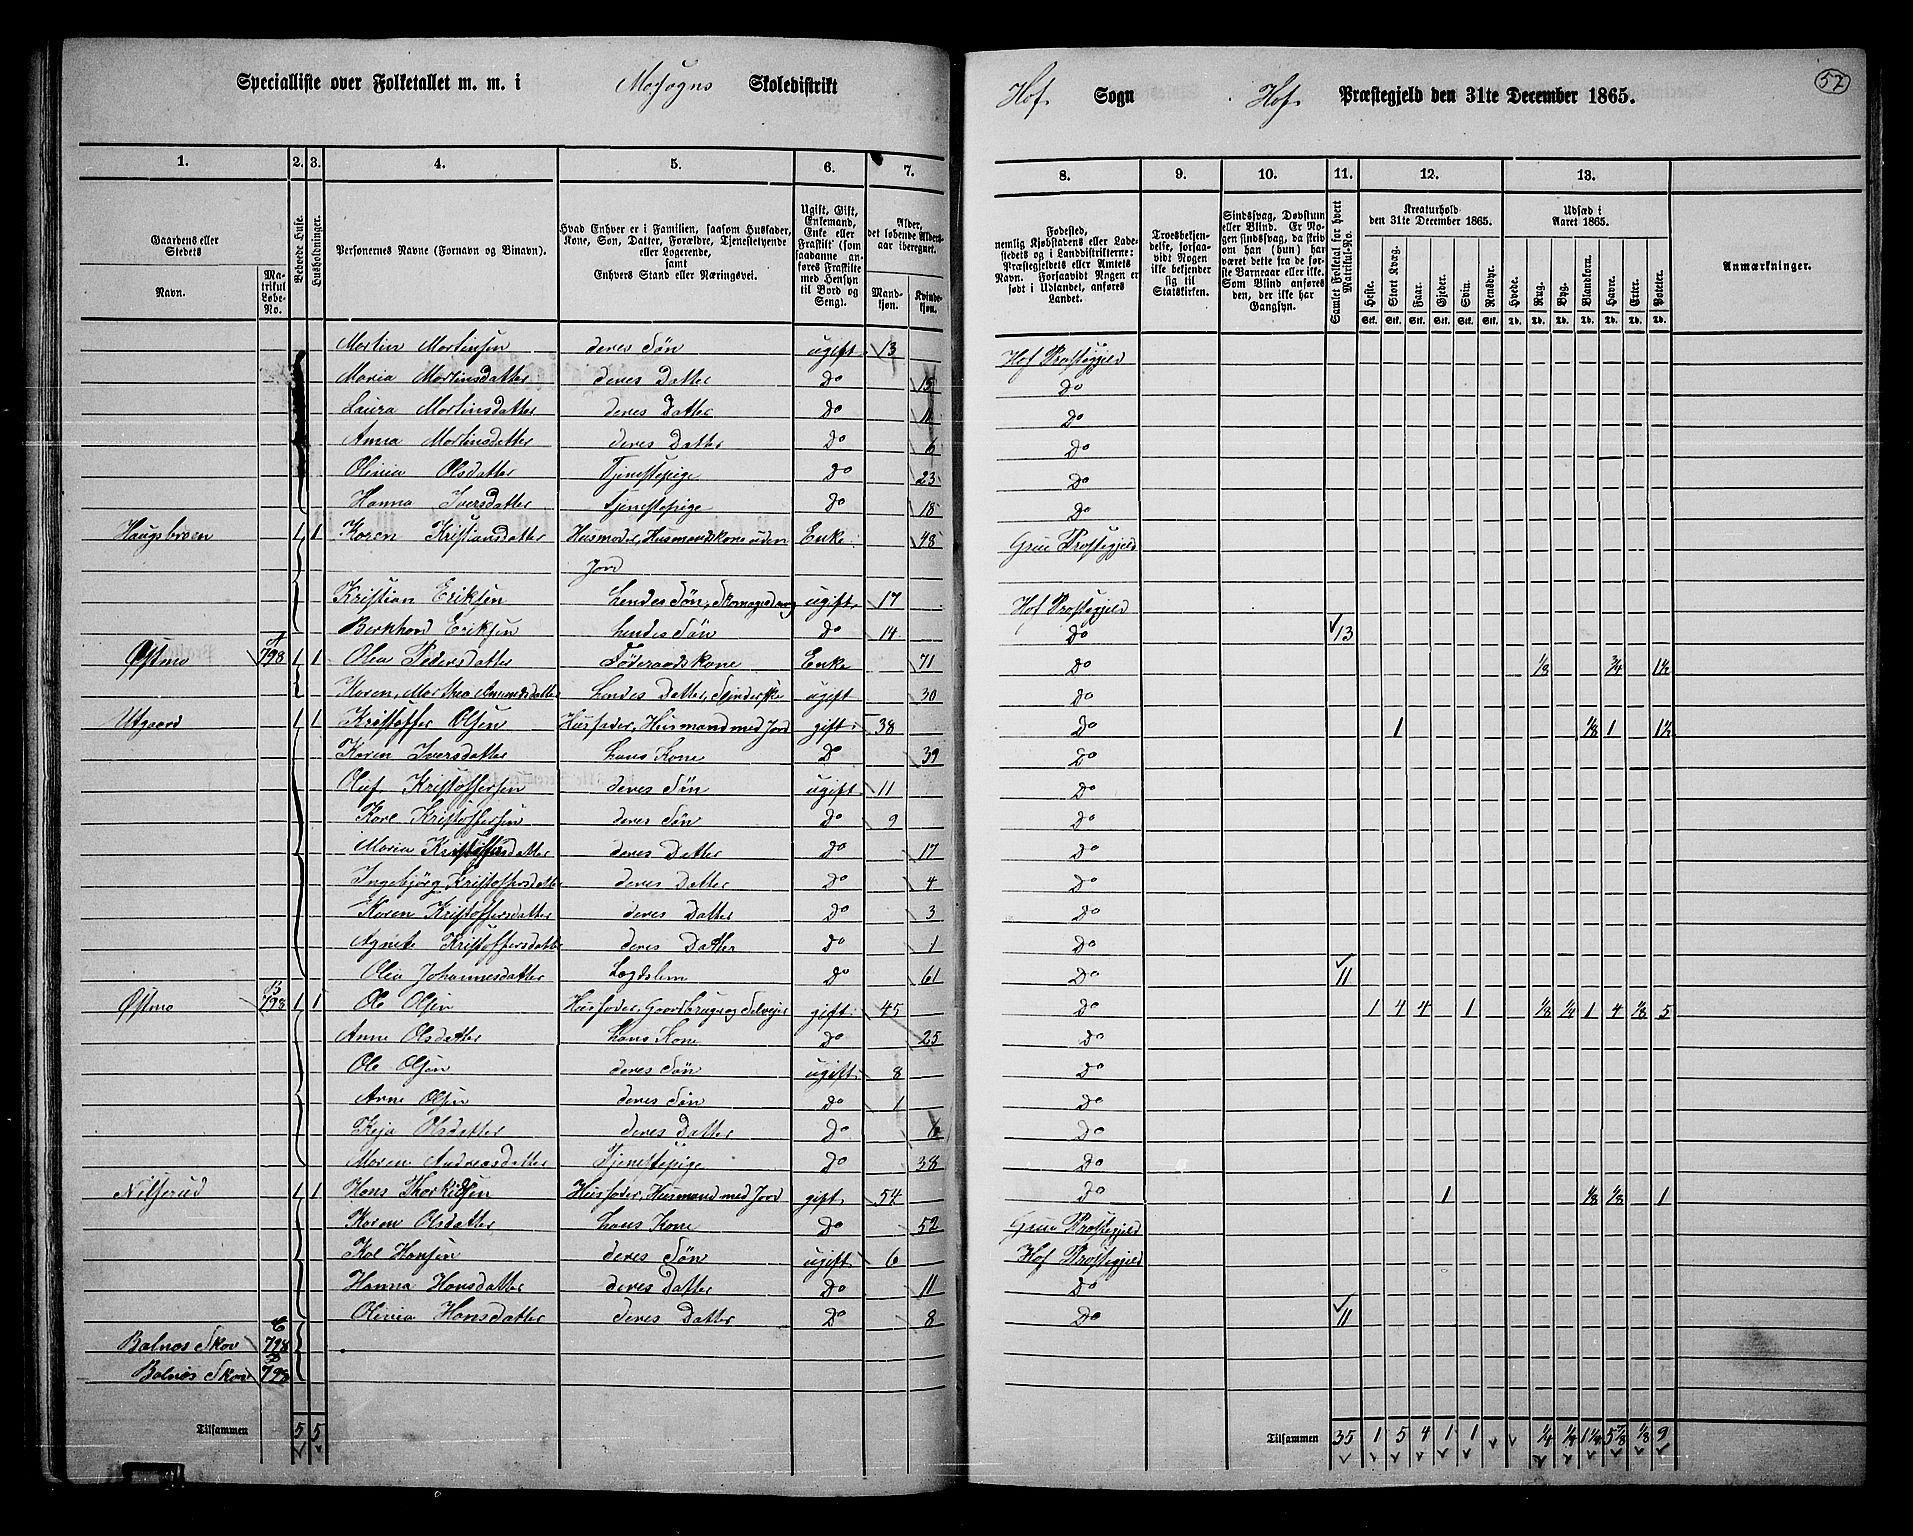 Specialliste over Folketallet m. m. i Mosogns Skoledistrikt
Hof Sogn Hof Præstegjeld den 31te December 1865.
57
1. 2. 3. 4. 5. 6. 7. 8. 9. 10. 11. 12. 13.
Gaardens eller Stedets Navn.
Matrikul Løbe-No.
Beboede Huse.
Husholdninger.
Personernes Navne (Fornavn og Binavn).
Hvad Enhver er i Familien, saasom Husfader, Kone, Søn, Datter, Forældre, Tjenestetyende eller Logerende, samt Enhvers Stand eller Næringsvei.
Ugift, Gift, Enkemand, Enke eller Fraskilt (som saadanne anføres Fraskilte med Hensyn til Bord og Seng).
Alder, det løbende Aldersaar iberegnet.
Mandkjøn. Kvindekjøn.
Fødested, nemlig Kjøbstadens eller Ladestedets og i Landdistrikterne: Præstegjeldets eller Amtets Navn. Forsaavidt Nogen er født i Udlandet, anføres Landet.
Troesbekjendelse, forsaavidt Nogen ikke bekjender sig til Statskirken.
Sindssvag, Døvstum eller Blind. Er Nogen sindssvag, da skrives om han (hun) har været dette fra de første Barneaar eller ikke. Som Blind anføres den, der ikke har Gangsyn.
Samlet Folketal for hvert Matrikul-No.
Kreaturhold den 31te December 1865.
Heste. Stort Kvæg. Faar. Gjeder. Svin. Rensdyr.
Udsæd i Aaret 1865.
Hvede. Rug. Byg. Blandkorn. Havre. Erter. Poteter.
Anmærkninger.
Stk. Stk. Stk. Stk. Stk. Stk. Td. Td. Td. Td. Td. Td. Td.
Martin Martinsen deres Søn ugift 13 Hof Præstegjeld
Maria Martinsdatter deres Datter Do 15 Do
Laura Martinsdatter deres Datter Do 11 Do
Anna Martinsdatter deres Datter Do 6 Do
Olivia Olsdatter Tjenestepige Do 23 Do
Hanna Iversdatter Tjenestepige Do 18 Do
Haugsbroen 1 1 Karen Kristiansdatter Husmoder, Husmandskone uden Enke 48 Grue Præstegjeld
Jord
Kristian Eriksen hendes Søn, ugift 17 Hof Præstegjeld
Berkhard Eriksen hendes Søn Do 14 Do 13
Østmo A 798 1 1 Olea Pedersdatter Føderaadskone Enke 71 Do 1/8 3/4 1½
Karen, Martha Amundsdatter hendes Datter, Spinderske ugift 30 Do
Utgaard 1 1 Kristoffer Olsen Husfader, Husmand med Jord gift 38 Do 1 1/8 1 1½
Karen Iversdatter hans Kone Do 39 Do
Oluf Kristoffersen deres Søn ugift 11 Do
Karl Kristoffersen deres Søn Do 9 Do
Maria Kristoffersdatter deres Datter Do 17 Do
Ingebjörg Kristoffersdatter deres Datter Do 4 Do
Karen Kristoffersdatter deres Datter Do 3 Do
Agnete Kristoffersdatter deres Datter Do 1 Do
Olea Johannesdatter Lægdslem Do 61 Do 11
Østmo B 798 1 1 Ole Olsen Husfader, Gaardbruger og Selveier gift 45 Do 1 4 4 1 1/8 1/4 1 4 1/8 5
Anne Olsdatter hans Kone Do 25 Do
Ole Olsen deres Søn ugift 8 Do
Arne Olsen deres Søn Do 1 Do
Keja Olsdatter deres Datter Do 6 Do
Maren Andreasdatter Tjenestepige Do 38 Do
Nilserud 1 1 Hans Thorkildsen Husfader, Husmand med Jord gift 54 Do 1 1/8 1/8 1
Karen Olsdatter hans Kone Do 52 Grue Præstegjeld
Kal Hansen deres Søn ugift 6 Hof Præstegjeld
Hanna Hansdatter deres Datter Do 11 Do
Olivia Hansdatter deres Datter Do 8 Do 11
Balnæs Skov C 798
Balnæs Skov D 798
Tilsammen 5 5 Tilsammen 35 1 5 4 1 1 1/4 1/4 1¼ 5 7/8 1/8 9